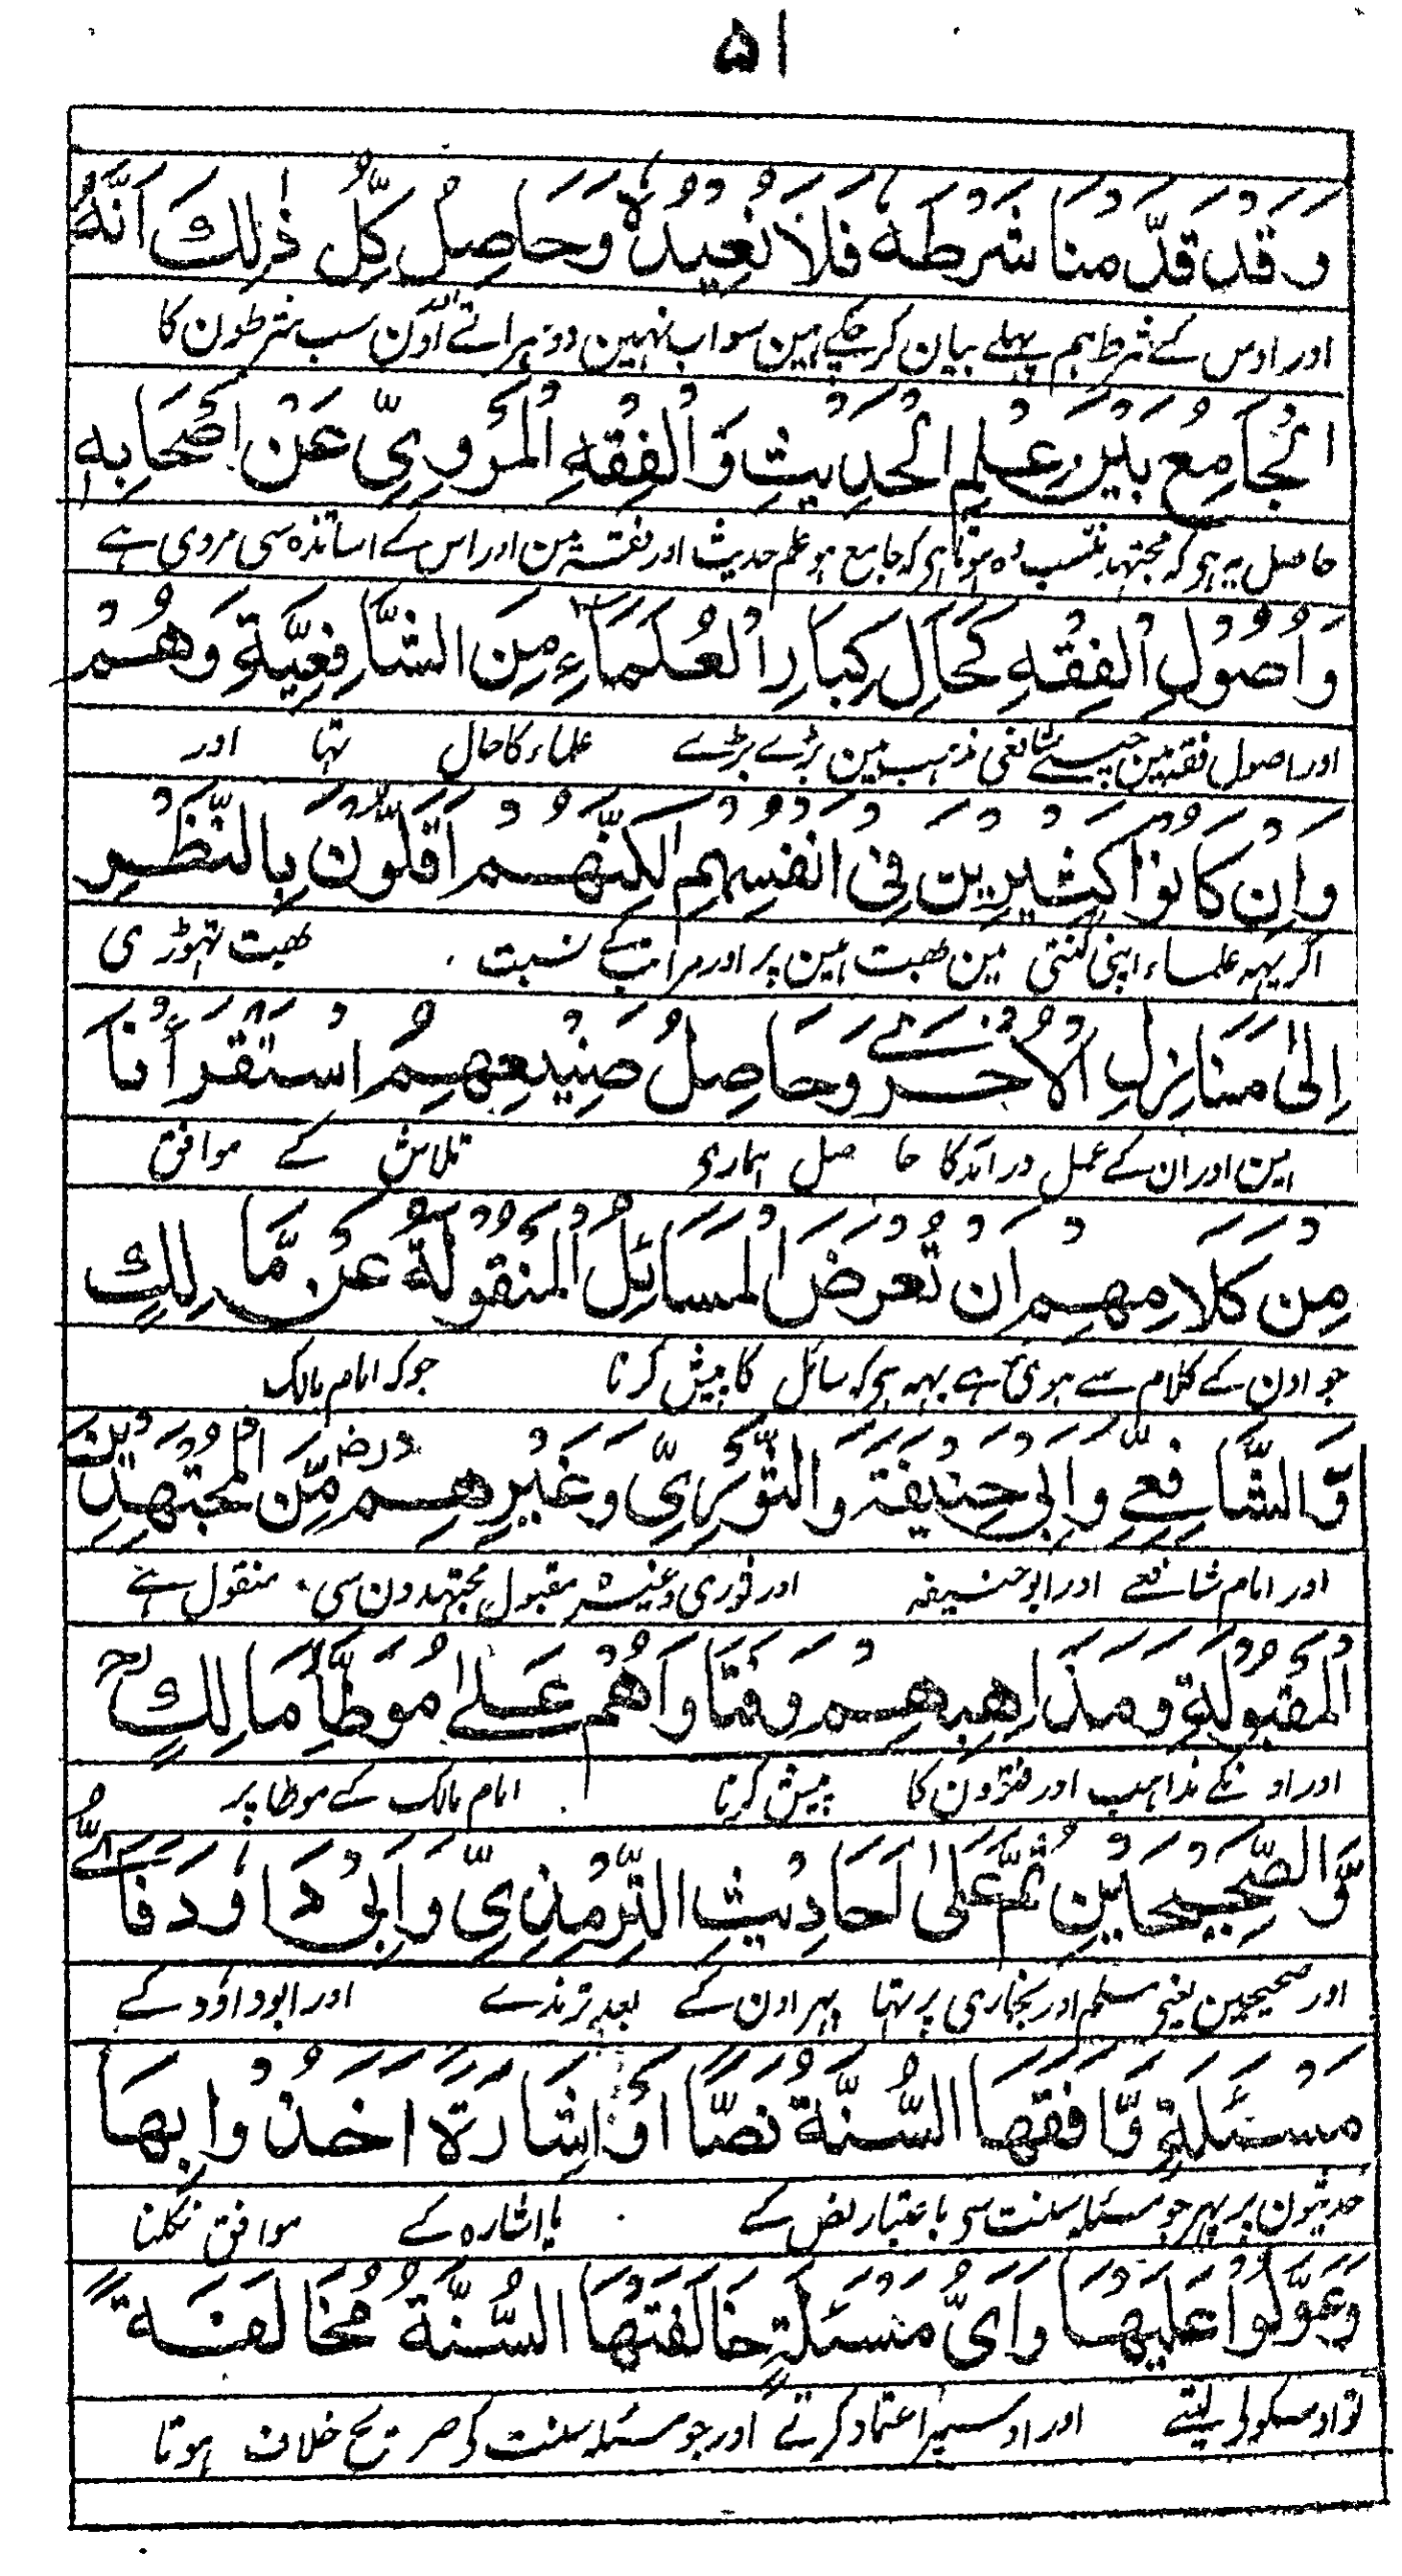 ۵۱
وَقَدْ قَدَّمْنَا شَرْطَهٗ فَلَا نُعِیْدُهٗ وَحَاصِلُ کُلِّ ذٰلِكَ اَنَّهُ
اور اوس کے شرط ہم پہلے بیان کر چکے ہین سو اب نہین دوہراتے اور ان سب شرطون کا
الْجَامِعُ بَیْنَ عِلْمِ الْحَدِیْثِ وَالْفِقْهِ الْمَرْوِیِّ عَنْ اَصْحَابِهٖ
حاصل یہ ہی کہ مجتہد منتسب وہ ہوتا ہی کہ جامع ہو علم حدیث اور فقہ مین اور اس کے اساتذہ سی مروی ہے
وَاُصُوْلِ الْفِقْهِ کَحَالِ کِبَارِ الْعُلَمَاءِ مِنَ الشَّافِعِیَّةِ وَهُمْ
اور اصول فقہ مین جیسے شافعی مذہب مین بڑے بڑے علماء کا حال تہا اور
وَاِنْ کَانُوْا کَثِیْرِیْنَ فِیْ اَنْفُسِهِمْ لٰکِنَّهُمْ اَقَلُّوْنَ بِالنَّظْرِ
اگر یہہ علماء اپنی گنتی مین بہت ہین پر اور مراتب کے نسبت بہت تہوڑی
اِلٰی مَنَازِلِ الْاُخْرٰی وَحَاصِلُ صَنِیْعِهِمْ اسْتَقْرَأْنَا
ہین اور ان کے عمل درآمد کا حاصل ہماری تلاش کے موافق
مِنْ کَلَامِهِمْ اَنْ تُعْرَضَ الْمَسَائِلُ الْمَنْقُوْلَةُ عَنْ مَّالِكٍ
جو اون کے کلام سے ہوئی ہے یہہ ہی کہ مسائل کا پیش کرنا جو کہ امام مالک
وَّالشَّافِعِیِّ وَاَبِیْ حَنِیْفَةَ وَالثَّوْرِیِّ وَغَیْرِهِمْ رض مِّنَ الْمُجْتَهِدِیْنَ
اور امام شافعے اور ابو حنیفہ اور ثوری وغیرہ مقبول مجتہدون سی منقول ہے
الْمَقْبُوْلَةِ وَمَذَاهِبِهِمْ وَفَتَاوَاهُمْ عَلٰی مُوَطَّأِ مَالِكٍ رح
اور اونکے مذاہب اور فتوون کا پیش کرنا امام مالک کے موطا پر
وَّالصَّحِیْحَیْنِ ثُمَّ عَلٰی اَحَادِیْثِ التِّرْمِذِیِّ وَاَبِیْ دَاوٗدَ فَاَیُّ
اور صحیحین یعنی مسلم اور بخاری پر تہا پہر اون کے بعد ترمذے اور ابوداؤد کے
مَسْئَلَةٍ وَّافَقَهَا السُّنَّةُ نَصًّا اَوْ اِشَارَةً اَخَذُوْا بِهَا
حدیثون پر پہر جو مسئلہ سنت سی باعتبار نص کے یا اشارہ کے موافق نکلتا
وَعَوَّلُوْا عَلَیْهَا وَاَیُّ مَسْئَلَةٍ خَالَفَتْهَا السُّنَّةُ مُخَالَفَةً
تو اوسکو لی لیتے اور اوسپر اعتماد کرتے اور جو مسئلہ سنت کی صریح خلاف ہوتا